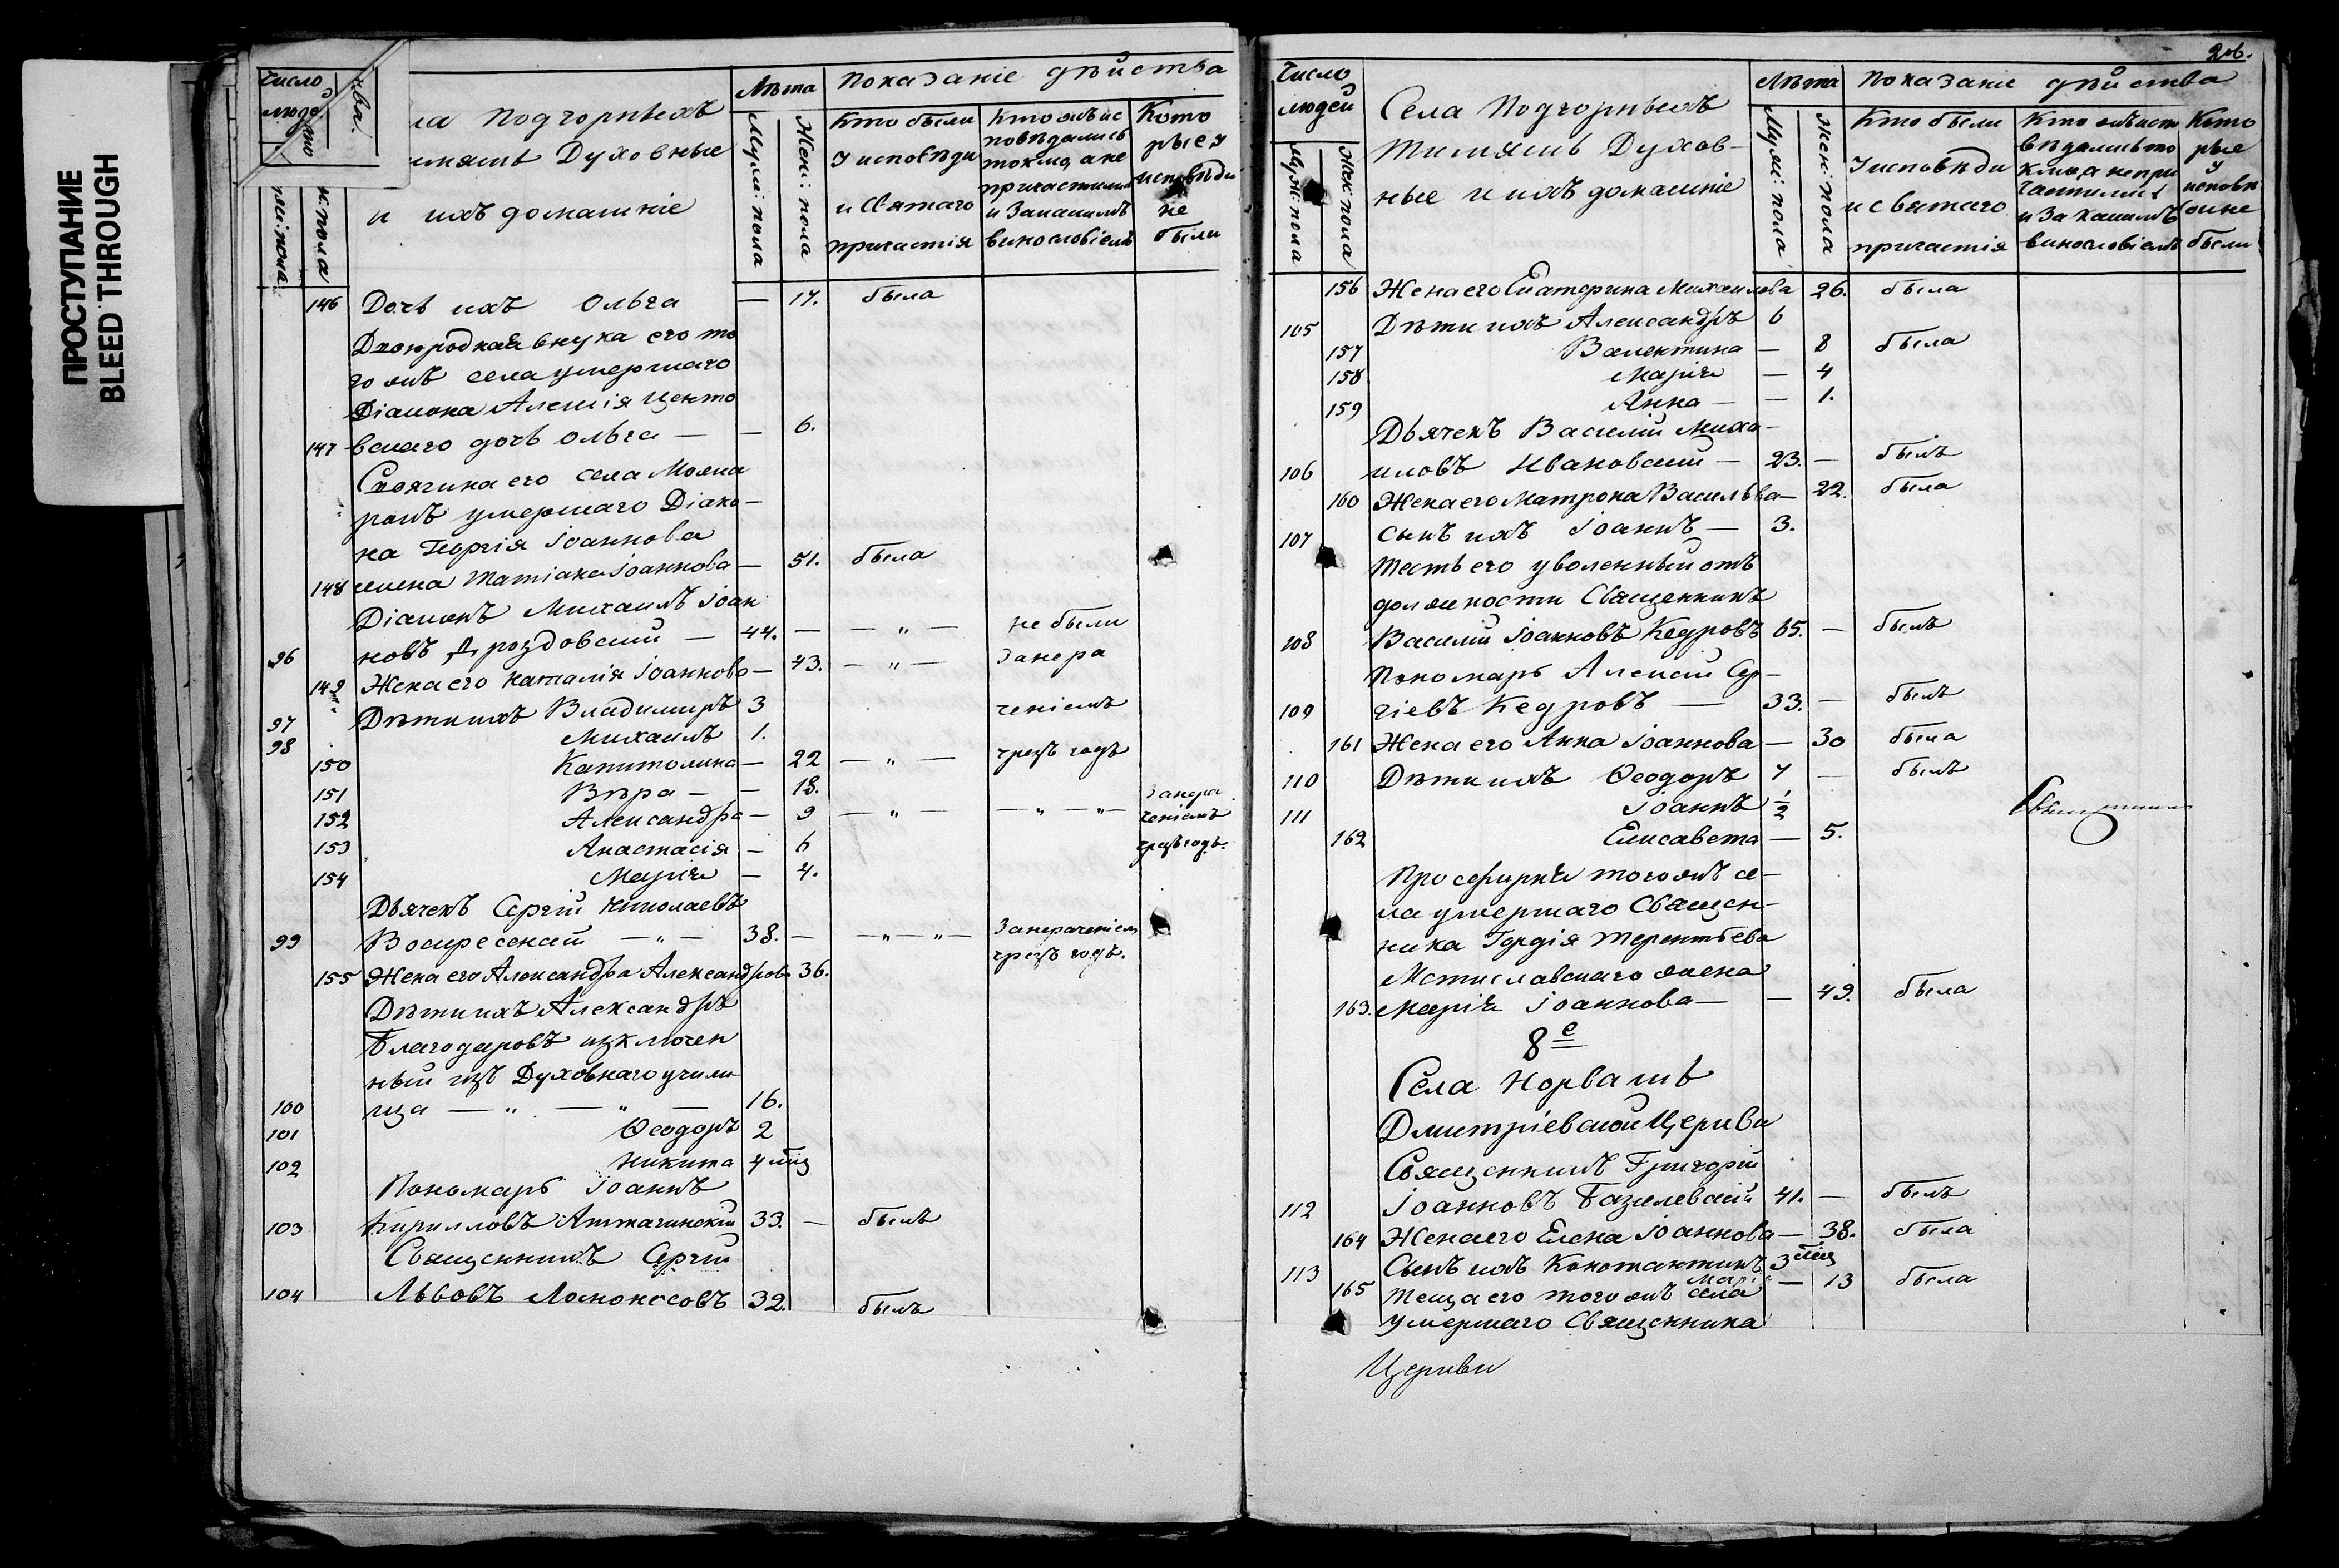 ПРОСТУПАНИЕ
BLEED THROUGH
Число
людей
Подгорныхъ
Духовные
и ихъ домашніе
Лѣта
Показаніе дѣйства
Муж: пола
Жен: пола
Кто были
У исповѣди
и Святаго
причастія
Кто ис
повѣдались
токмо, а не
причастились
и за какимъ
винословіемъ
Кото
рые у
исповѣди
не
были
146 Дочь ихъ Ольга — 17. была
Двоюродная внука его то
го жъ села умершаго
Діакона Алексія Цвѣто
147 вскаго дочь Ольга — — 6.
Своячина его села
умершаго Діако-
на Георгія Іоаннова
148 жена Татіана Іоаннова — 51. была
Діаконъ Михаилъ Іоан
96 новъ Дроздовскій — 44. — — „ — не были
149 Жена его Наталія Іоаннова — 43. — „ — Занера
97 Дѣти ихъ Владимиръ 3 ченіемъ
98 Михаилъ 1.
150 Капитолина — 22 — „ — чрезъ годъ
151 Вѣра — — 13.
152 Александра — 9 — „ — — „ — „ — Занера
ченіемъ
153 Анастасія — 6 чрезъ годъ.
154 Марія — 4.
Дьячекъ Сергій Николаевъ
99 Воскресенскій — „ — 38. — — „ — „ — Занераченіем
чрезъ годъ.
155 Жена его Александра Александрова 36.
Дѣти ихъ Александръ
Благодаровъ изключен
ный изъ Духовнаго учили
100 ща — „ — „ — 16.
101 Ѳеодоръ 2
102 Никита 4 мѣц
Пономарь Іоаннъ
103 Кирилловъ 33. — былъ
Священникъ Сергій
104 Львовъ Ломоносовъ 32. былъ
206.
Число
людей
Муж: пола
Жен: пола
Села Подгорныхъ
Тимяшъ Духов-
ные и ихъ домашніе
Лѣта
Показаніе дѣйства
Муж: пола
Жен: пола
Кто были
У исповѣди
и святаго
причастія
Кто испо
вѣдались то
кмо, а непри
частились
и за какимъ
винословіемъ
Кото
рые
у
исповѣ
ди не
были
156 Жена его Екатерина Михаилова 26. была
105 Дѣти ихъ Александръ 6
157 Валентина — 8 была
158 Марія — 4
159 Анна — — 1.
Дьячекъ Василій Миха-
106 иловъ Ивановскій — 23. — былъ
160 Жена его Матрона Васильева — 22. была
107 Сынъ ихъ Іоаннъ — 3.
Тесть его уволенный отъ
должности Священникъ
108 Василій Іоанновъ Кедровъ 65. — былъ
Пономарь Алексій Сер-
109 гіевъ Кедровъ — 33. — былъ
161 Жена его Анна Іоаннова — 30 была
110 Дѣти ихъ Ѳеодоръ 7 — былъ
111 Іоаннъ 1/2
162 Елисавета — 5.
Просфирня того жъ се-
ла умершаго Священ-
ника Гордія Терентьева
Мстиславскаго жена
163. Марія Іоаннова — — 49. была
8е
Села Норвашъ
Дмитріевской Церкви
Священникъ Григорій
112 Іоанновъ Базилевскій 41. — былъ
164 Жена его Елена Іоаннова — 38. была
113 Сынъ ихъ Константинъ 3 мѣц
165 Марія — 13 была
Теща его того жъ села
умершаго Священника
Церкви